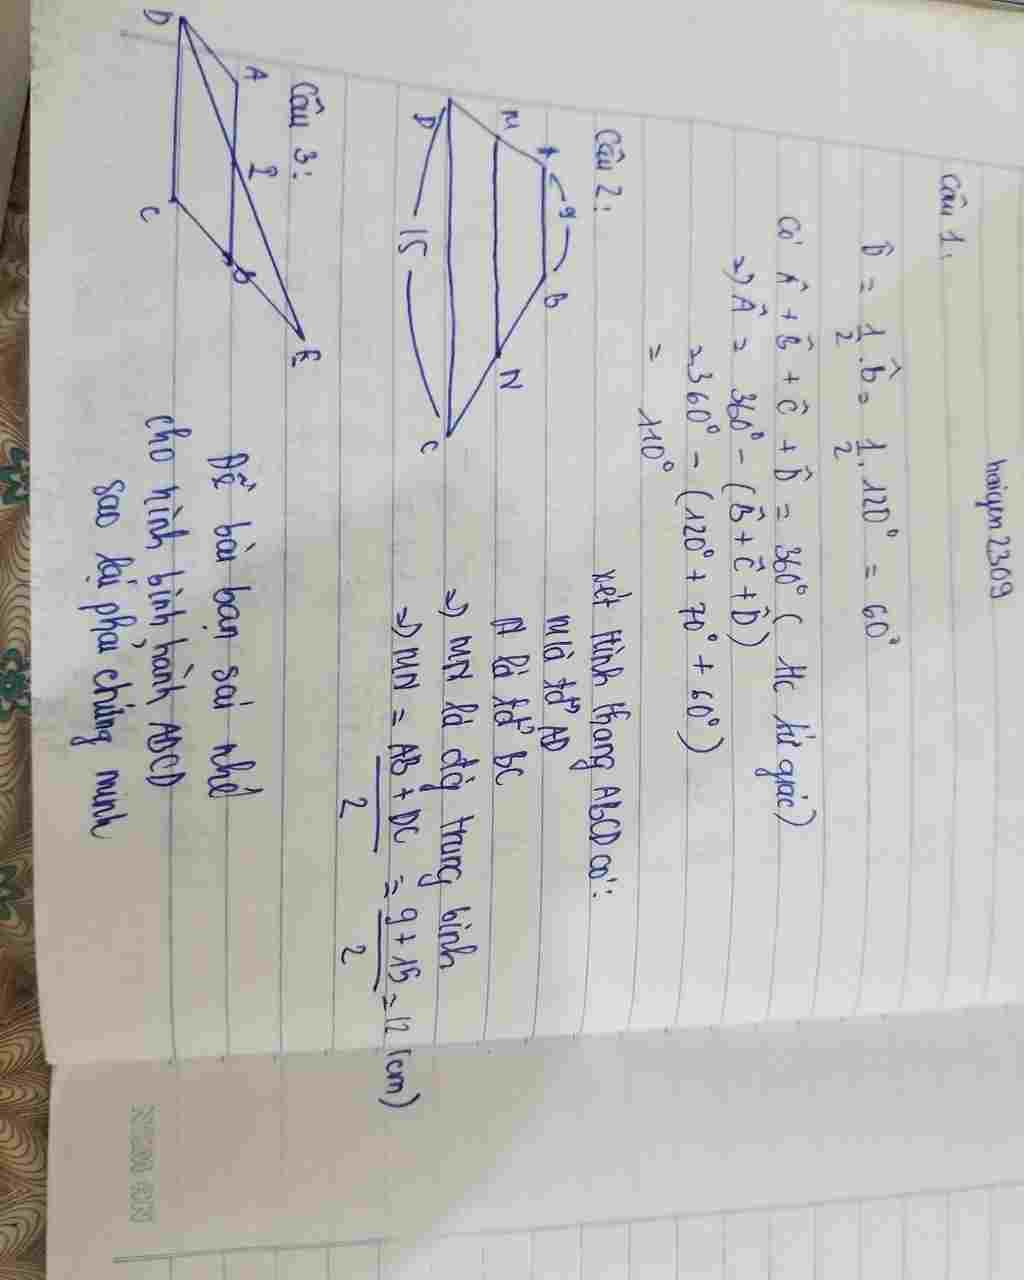 haigem2309
Câu 1:
D̂ = 1/2 . b̂ = 1/2 . 120° = 60°
Có Â + B̂ + Ĉ + D̂ = 360° ( t/c tứ giác )
=) Â = 360° - (B̂ + Ĉ + D̂)
= 360° - (120° + 70° + 60°)
= 110°
Câu 2:
A 9 B
M N
D 15 C
xét hình thang ABCD có:
M là tđ' AD
N là tđ' BC
=) MN là đg trung bình
=) MN = AB + DC / 2 = 9 + 15 / 2 = 12 (cm)
Câu 3:
A I B E
D C
Đề bài bạn sai nhé
cho hình bình hành ABCD
sao lại phải chứng minh